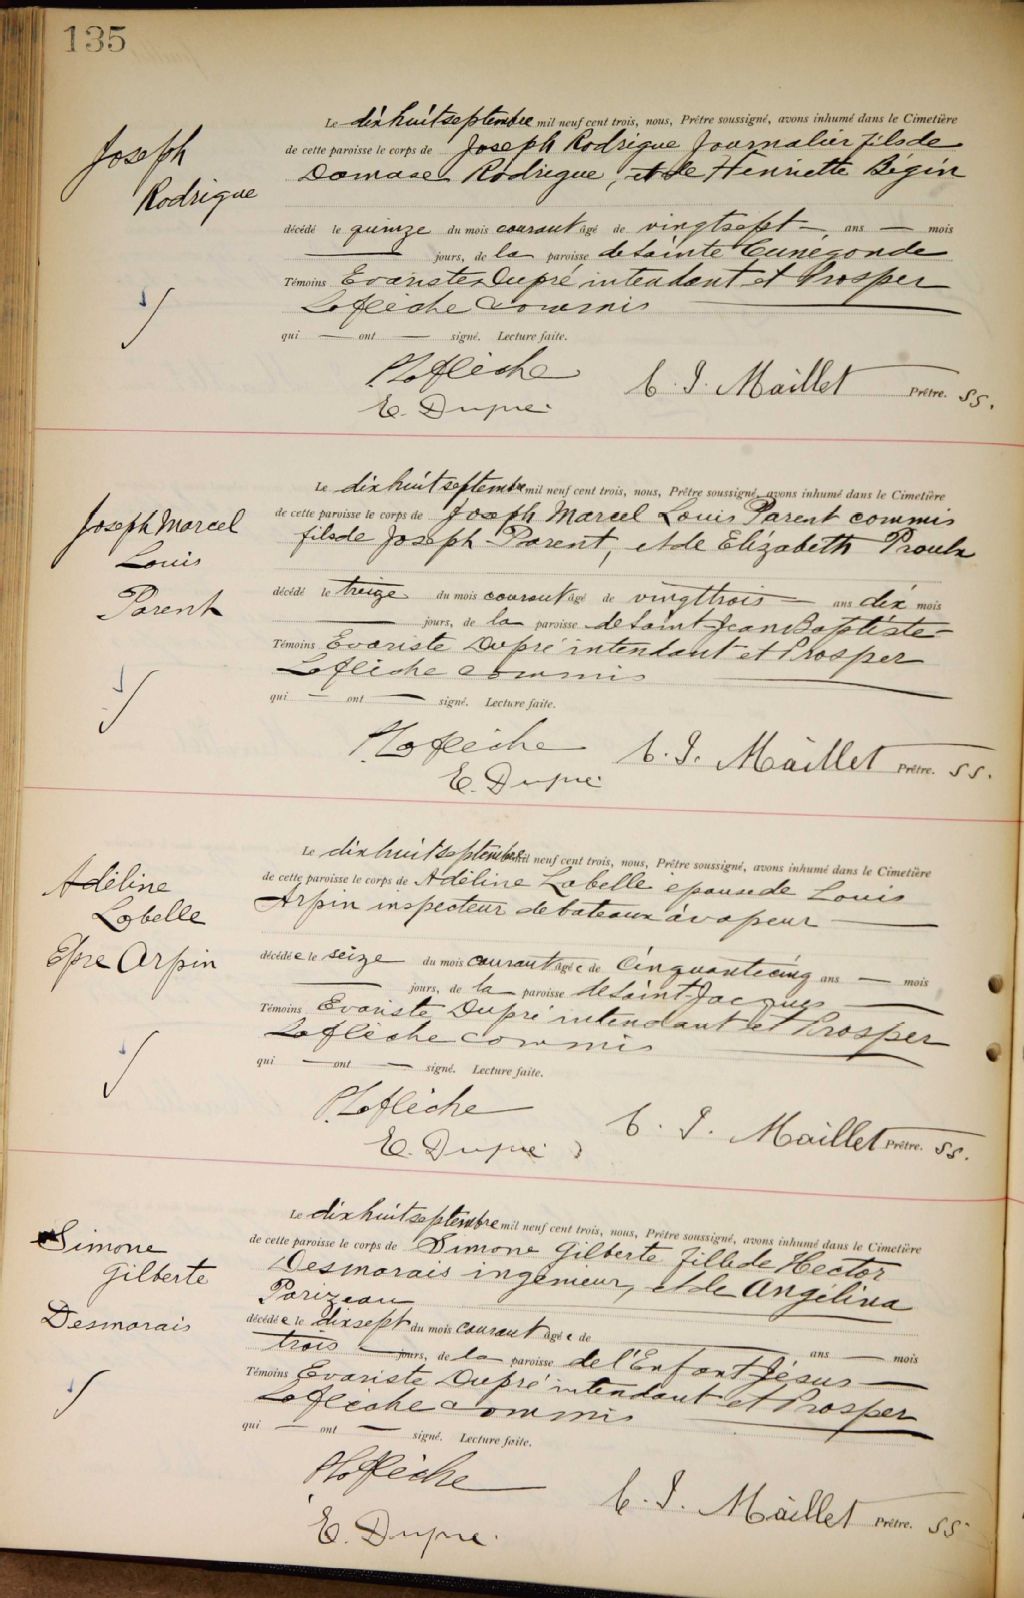 135
Joseph
Rodrigue
Le dix huit septembre mil neuf cent trois, nous, Prêtre soussigné, avons inhumé dans le Cimetière
de cette paroisse le corps de Joseph Rodrigue Journalier fils de
Damase Rodrigue, et de Henriette Bégin
décédé le quinze du mois courant âgé de vingt sept — ans — mois
— jours, de la paroisse de Sainte Cunégonde
Témoins Evariste Dupré intendant et Prosper
Laflèche commis —
qui — ont — signé. Lecture faite.
P. Laflèche
E. Dupré
C. J. Maillet Prêtre. SS.
Joseph Marcel
Louis
Parent
Le dix huit septembre mil neuf cent trois, nous, Prêtre soussigné, avons inhumé dans le Cimetière
de cette paroisse le corps de Joseph Marcel Louis Parent commis
fils de Joseph Parent, et de Elizabeth Proulx
décédé le treize du mois courant âgé de vingt trois — ans dix mois
— jours, de la paroisse de Saint Jean Baptiste —
Témoins Evariste Dupré intendant et Prosper
Laflèche commis —
qui — ont — signé. Lecture faite.
P. Laflèche
E. Dupré
C. J. Maillet Prêtre. SS.
Adéline
Labelle
Epse Arpin
Le dix huit septembre mil neuf cent trois, nous, Prêtre soussigné, avons inhumé dans le Cimetière
de cette paroisse le corps de Adéline Labelle épouse de Louis
Arpin inspecteur de bateaux à vapeur —
décédée le seize du mois courant âgée de cinquante cinq ans — mois
— jours, de la paroisse de Saint-Jacques —
Témoins Evariste Dupré intendant et Prosper
Laflèche commis —
qui — ont — signé. Lecture faite.
P. Laflèche
E. Dupré
C. J. Maillet Prêtre. SS.
Simone
Gilberte
Desmarais
Le dix huit septembre mil neuf cent trois, nous, Prêtre soussigné, avons inhumé dans le Cimetière
de cette paroisse le corps de Simone Gilberte fille de Hector
Desmarais ingénieur, et de Angélina
Parizeau
décédée le dix sept du mois courant âgée de — ans — mois
trois — jours, de la paroisse de l'Enfant Jésus —
Témoins Evariste Dupré intendant et Prosper
Laflèche commis —
qui — ont — signé. Lecture faite.
P. Laflèche
E. Dupré
C. J. Maillet Prêtre. SS